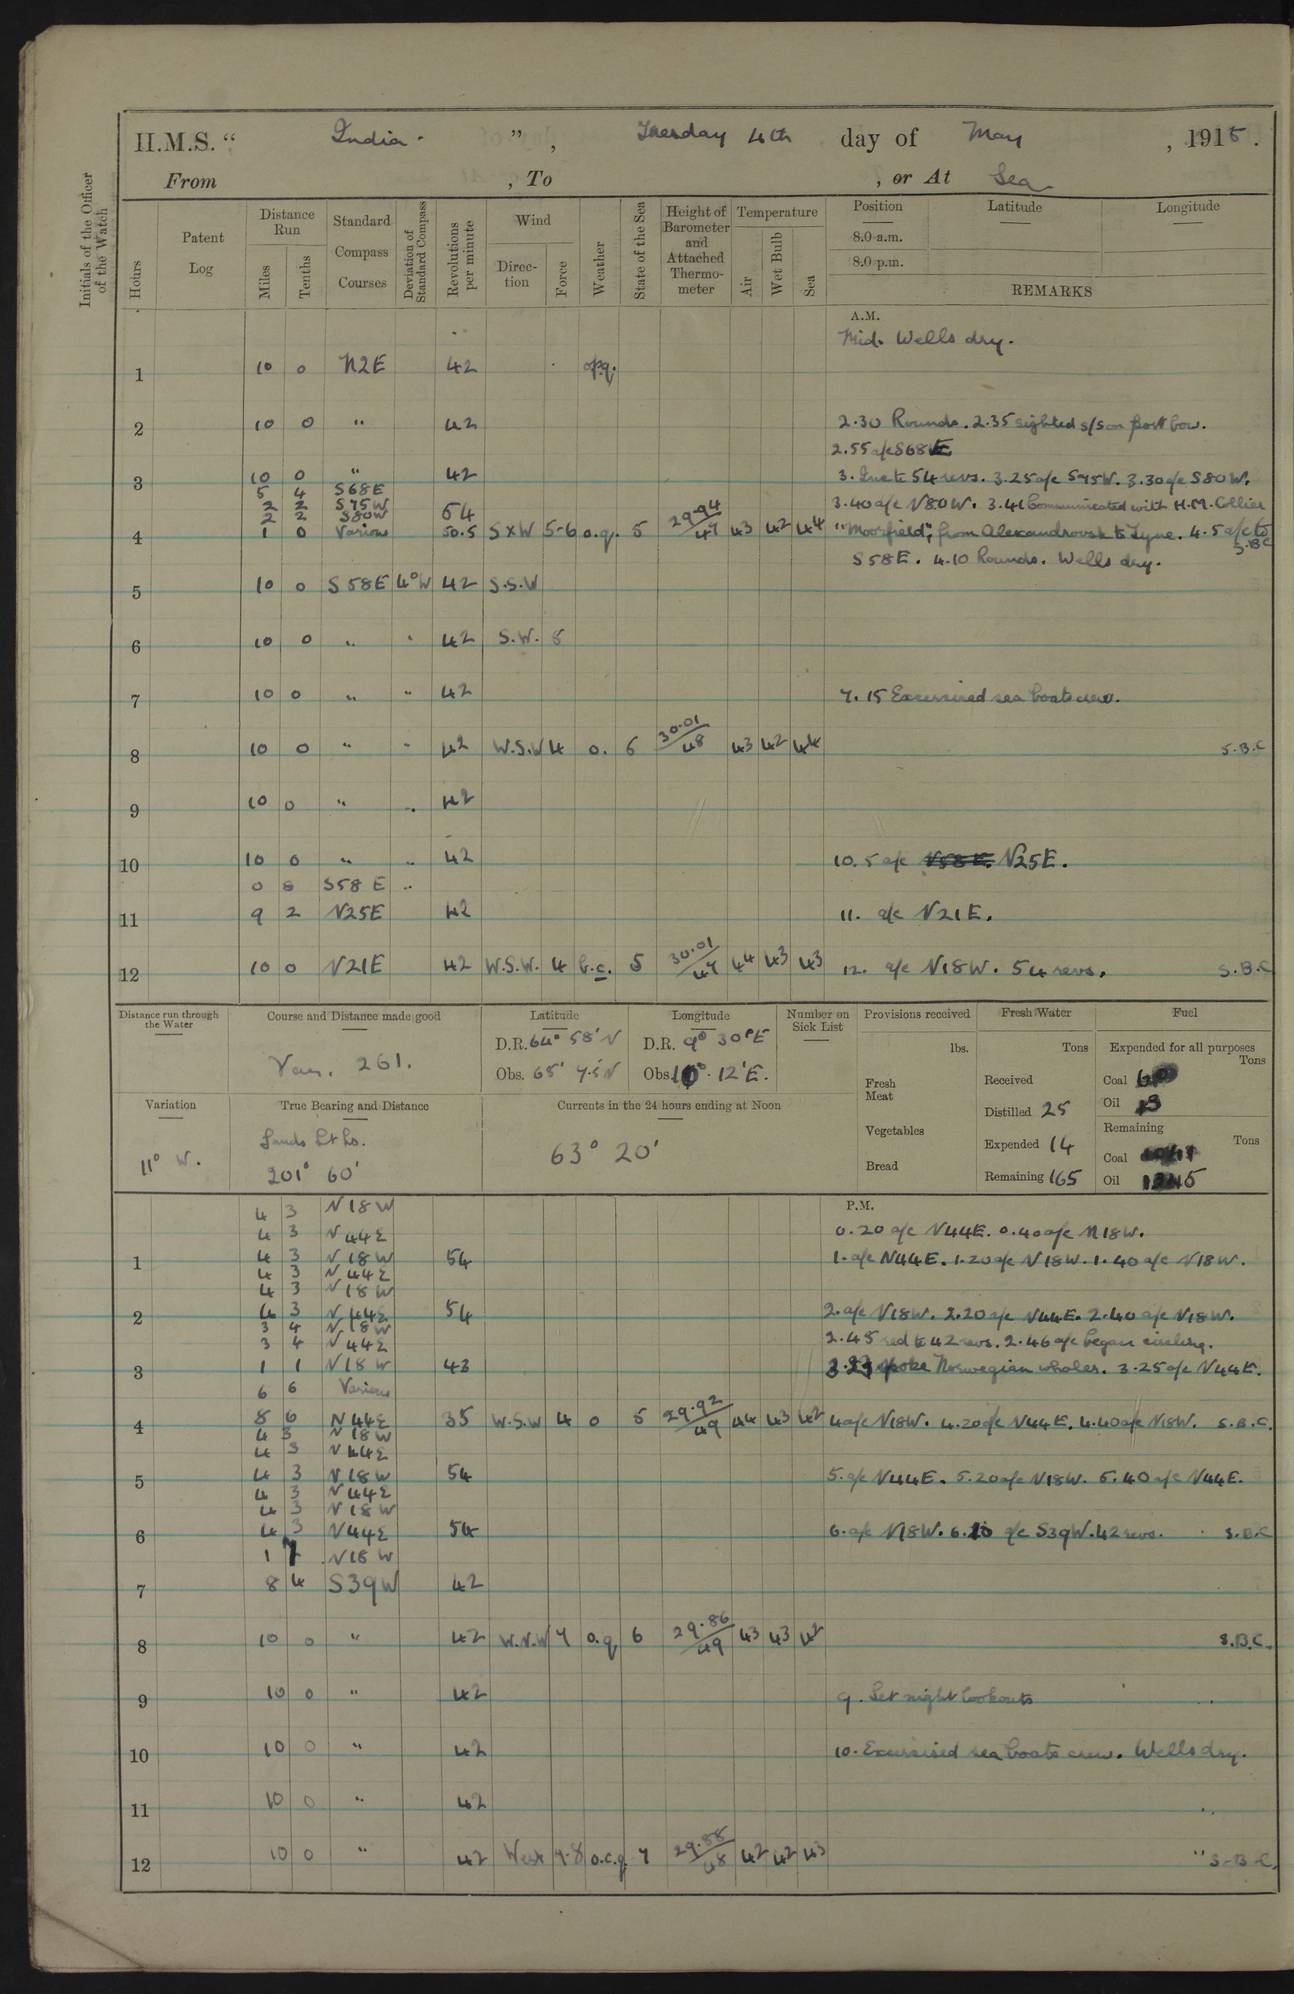 H.M.S. “ India. ”, Tuesday 4th day of May, 1915.
From , To , or At Sea
Initials of the Officer of the Watch
Hours
Patent Log
Distance Run
Miles
Tenths
Standard Compass Courses
Deviation of Standard Compass
Revolutions per minute
Wind
Direction
Force
Weather
State of the Sea
Height of Barometer and Attached Thermometer
Temperature
Air
Wet Bulb
Sea
Position Latitude Longitude
8.0 a.m.
8.0 p.m.
REMARKS
A.M.
Mid. Wells dry.
1 10 0 N2E 42 o.p.q.
2 10 0 " 42 2.30 Rounds. 2.35 sighted s/s on port bow.
2.55 a/c S68E
3 10 0 " 42 3. Inc to 54 revs. 3.25 a/c S75W. 3.30 a/c S80W.
5 4 S68E
2 2 S75W
2 2 S80W 54 3.40 a/c N80W. 3.41 Communicated with H.M. Collier
4 1 0 Various 50.5 SxW 5-6 o.q. 5 29.94/47 43 42 44 "Moorfield", from Alexandrovsk to Tyne. 4.5 a/c to S.B.C
S58E. 4.10 Rounds. Wells dry.
5 10 0 S58E 4°W 42 S.S.W
6 10 0 " " 42 S.W. 5
7 10 0 " " 42 7.15 Excersised sea boats crew.
8 10 0 " " 42 W.S.W 4 o. 6 30.01/48 43 42 44 S.B.C
9 10 0 " " 42
10 10 0 " " 42 10.5 a/c N58E. N25E.
0 8 S58E "
11 9 2 N25E 42 11. a/c N21E.
12 10 0 N21E 42 W.S.W. 4 b.c. 5 30.01/47 44 43 43 12. a/c N18W. 54 revs. S.B.C
Distance run through the Water
Course and Distance made good
Var. 261.
Latitude
D.R. 64° 58' N
Obs. 65° 7.5' N
Longitude
D.R. 9° 30' E
Obs. 10° 12' E.
Number on Sick List
Provisions received
lbs.
Fresh Meat
Vegetables
Bread
Fresh Water
Tons
Received
Distilled 25
Expended 14
Remaining 165
Fuel
Expended for all purposes
Tons
Coal
Oil
Remaining
Tons
Coal
Oil
Variation
11° W.
True Bearing and Distance
Lt Ho.
201° 60'
Currents in the 24 hours ending at Noon
63° 20'
P.M.
4 3 N18W
4 3 N44E 0.20 a/c N44E. 0.40 a/c N18W.
1 4 3 N18W 54 1. a/c N44E. 1.20 a/c N18W. 1.40 a/c N18W.
4 3 N44E
4 3 N18W
2 4 3 N44E 54 2. a/c N18W. 2.20 a/c N44E. 2.40 a/c N18W.
3 4 N18W
3 4 N44E 2.45 red to 42 revs. 2.46 a/c began circling.
3 1 1 N18W 43 spoke Norwegian whaler. 3.25 a/c N44E.
6 6 Various
4 8 6 N44E 35 W.S.W 4 o 5 29.92/49 44 43 42 4 a/c N18W. 4.20 a/c N44E. 4.40 a/c N18W. S.B.C.
4 3 N18W
4 3 N44E
5 4 3 N18W 54 5. a/c N44E. 5.20 a/c N18W. 5.40 a/c N44E.
4 3 N44E
4 3 N18W
6 4 3 N44E 54 6. a/c N18W. 6.10 a/c S39W. 42 revs. S.B.C
1 7 N18W
7 8 4 S39W 42
8 10 0 " 42 W.N.W 7 o.q 6 29.86/49 43 43 42 S.B.C.
9 10 0 " 42 9. Set night lookouts
10 10 0 " 42 10. Excersised sea boats crew. Wells dry.
11 10 0 " 42 "
12 10 0 " 42 West 7-8 o.c.q 7 29.88/48 42 42 43 " S.B.C.